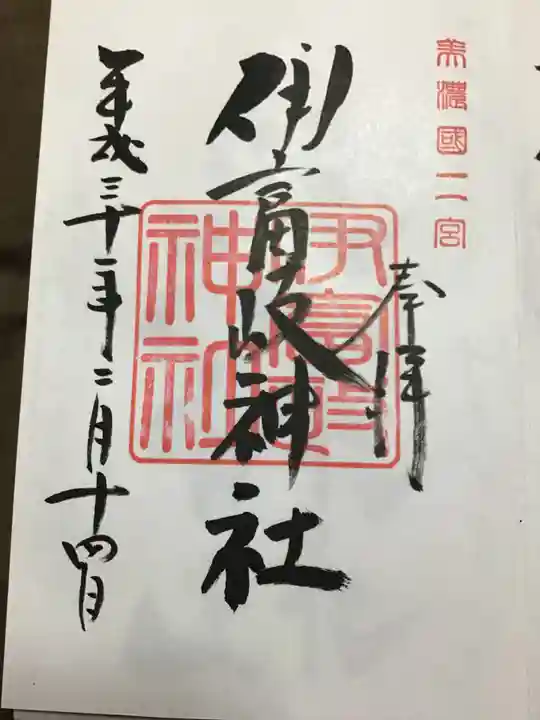 美濃國二宮
奉拝
伊富岐神社
平成三十一年二月十四日